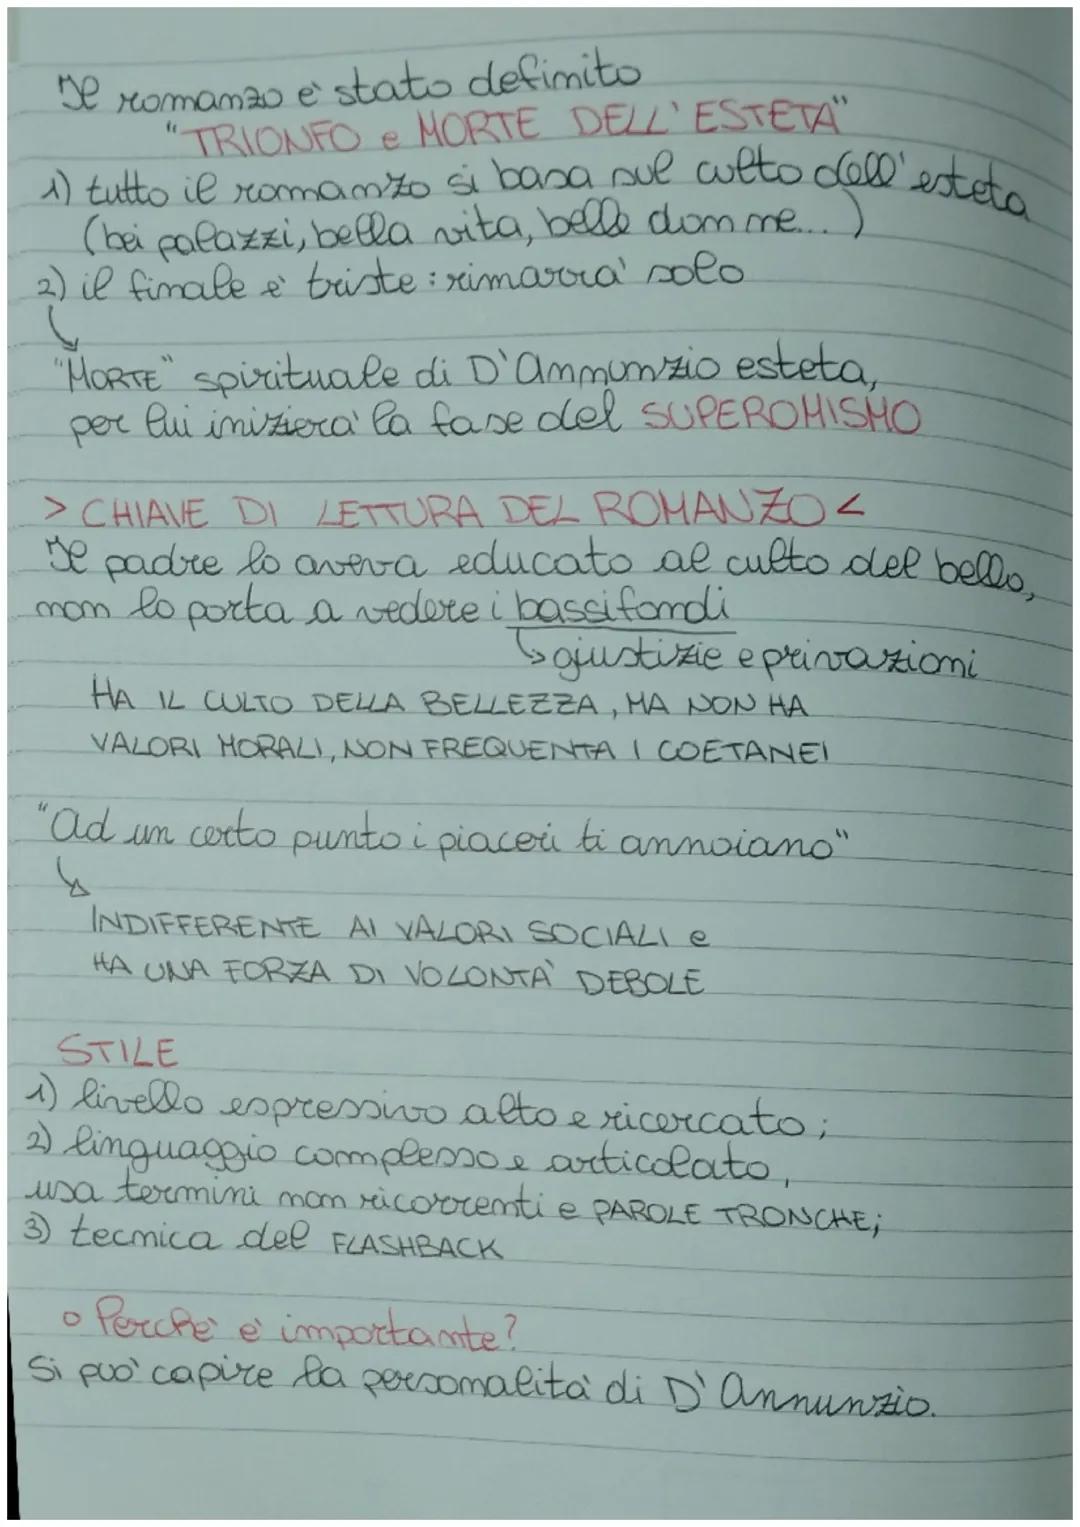 Il romanzo è stato definito
"TRIONFO e MORTE DELL'ESTETA"
1) tutto il romanzo si basa sul culto dell'esteta
(bei palazzi, bella vita, belle donne...)
2) il finale è triste: rimarrà solo
"MORTE" spirituale di D'Annunzio esteta,
per lui inizierà la fase del SUPEROMISMO
> CHIAVE DI LETTURA DEL ROMANZO <
Il padre lo aveva educato al culto del bello,
non lo porta a vedere i bassifondi
giustizie e privazioni
HA IL CULTO DELLA BELLEZZA, MA NON HA
VALORI MORALI, NON FREQUENTA I COETANEI
"Ad un certo punto i piaceri ti annoiano"
INDIFFERENTE AI VALORI SOCIALI e
HA UNA FORZA DI VOLONTÀ DEBOLE
STILE
1) livello espressivo alto e ricercato;
2) linguaggio complesso e articolato,
usa termini non ricorrenti e PAROLE TRONCHE;
3) tecnica del FLASHBACK
o Perché è importante?
Si può capire la personalità di D'Annunzio.